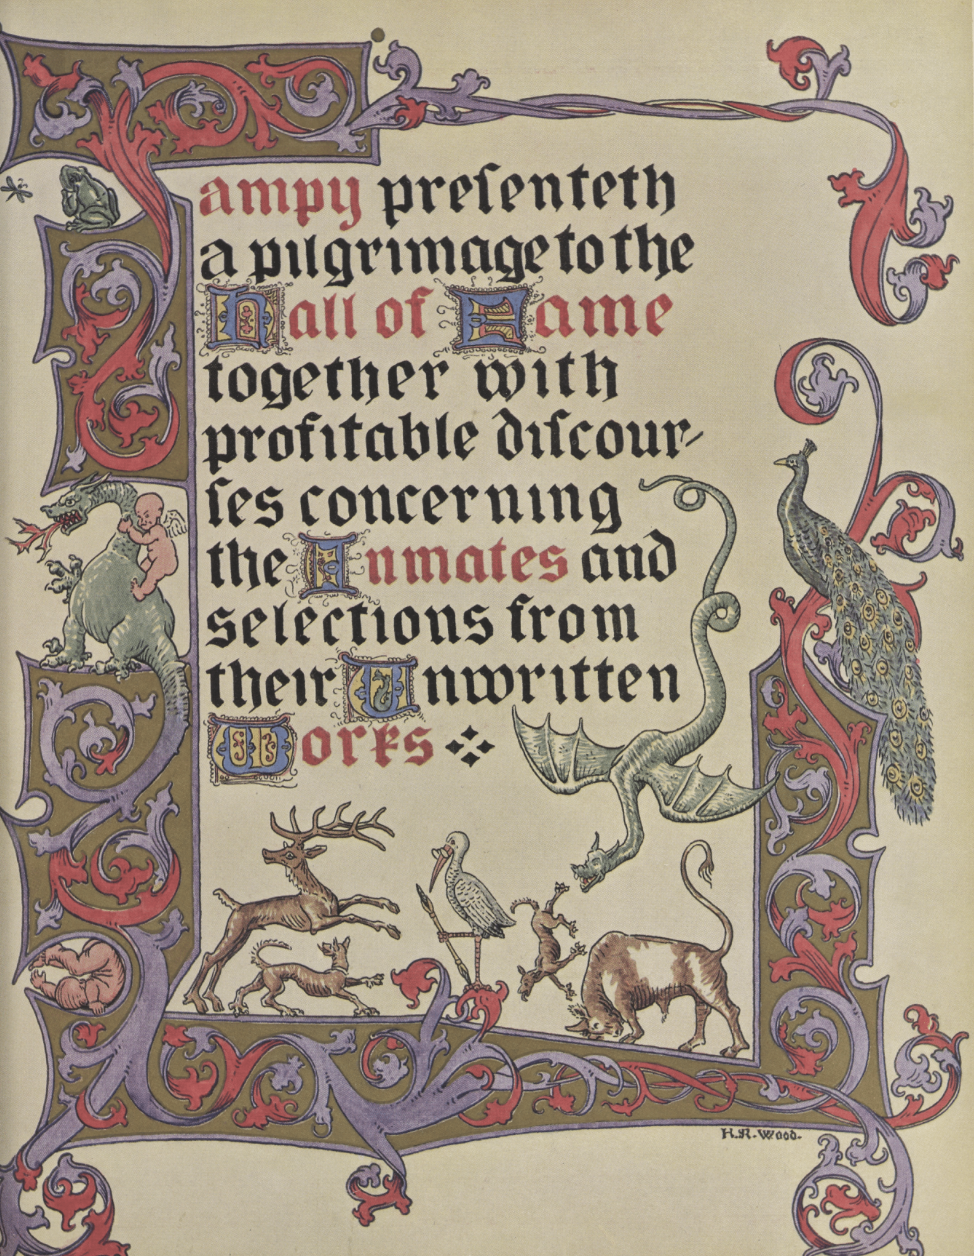 Lampy preſenteth
a pilgrimage to the
Hall of Fame
together with
profitable diſcour-
ſes concerning
the Inmates and
selections from
their Unwritten
Works
H.R. Wood.